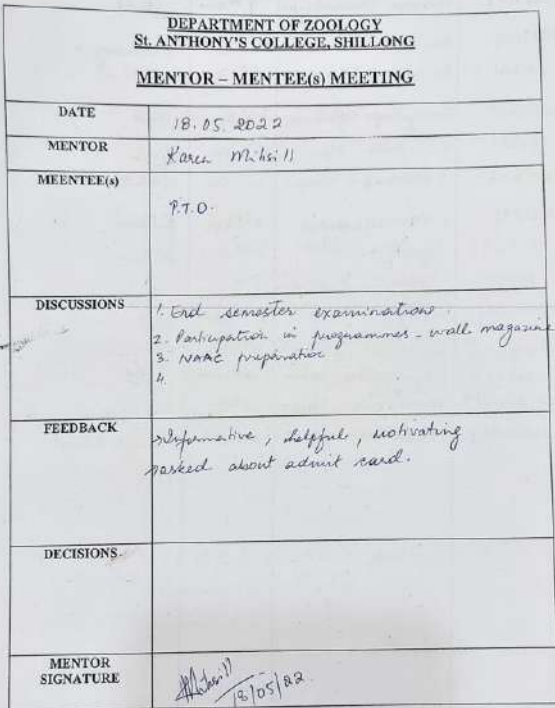 DEPARTMENT OF ZOOLOGY
St. ANTHONY'S COLLEGE, SHILLONG
MENTOR – MENTEE(s) MEETING
DATE
18.05.2022
MENTOR
Karen Mihsill
MEENTEE(s)
P.T.O.
DISCUSSIONS
1. End semester examinations.
2. Participation in programmes - wall magazine
3. NAAC preparation
4.
FEEDBACK
→Informative, helpful, motivating
→asked about admit card.
DECISIONS
MENTOR
SIGNATURE
18/05/22